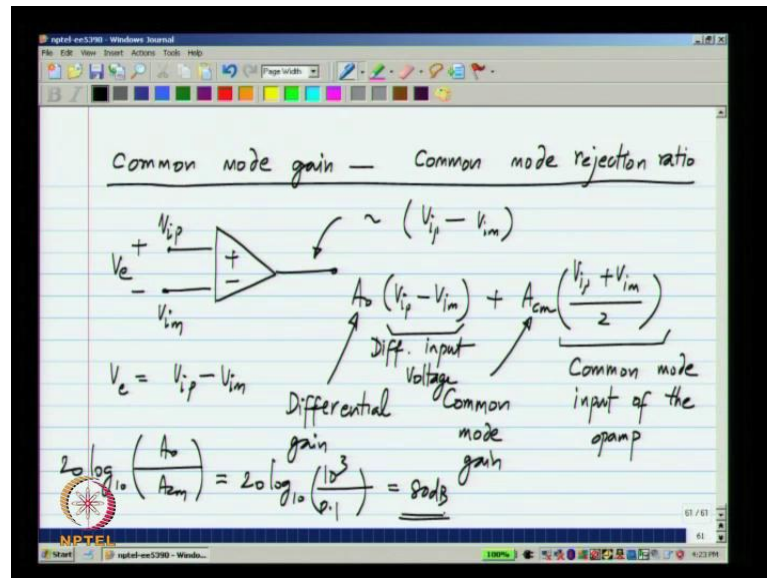 nptel-ee5390 - Windows Journal
File Edit View Insert Actions Tools Help
Page Width
B I
Common mode gain — Common mode rejection ratio
V_ip
+ V_e -
V_im
+
-
~ (V_ip - V_im)
A_0 (V_ip - V_im) + A_cm ((V_ip + V_im)/2)
Diff. input Voltage
Common mode input of the opamp
V_e = V_ip - V_im
Differential gain
Common mode gain
20 log_10 (A_0/A_2m) = 20 log_10 (10^3/0.1) = 80dB
61 / 61
61
NPTEL
Start
nptel-ee5390 - Windo...
100%
4:23 PM